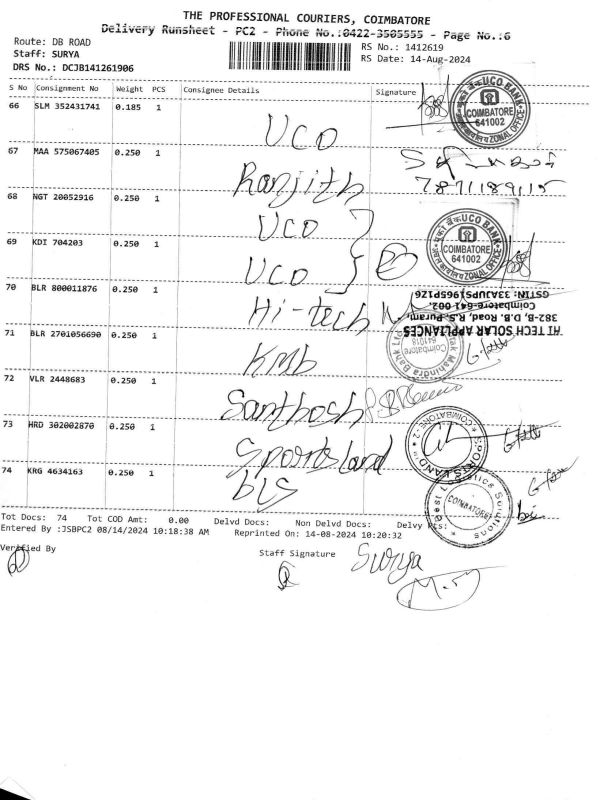 THE PROFESSIONAL COURIERS, COIMBATORE
Delivery Runsheet - PC2 - Phone No.:0422-3505555 - Page No.:6
Route: DB ROAD
RS No.: 1412619
Staff: SURYA
RS Date: 14-Aug-2024
DRS No.: DCJB141261906
S No Consignment No Weight PCS Consignee Details Signature
66 SLM 352431741 0.185 1
UCO
UCO BANK
COIMBATORE
641002
ZONAL OFFICE
67 MAA 575067405 0.250 1
Ranjith
7871189115
68 NGT 20052916 0.250 1
UCO
UCO BANK
COIMBATORE
641002
ZONAL OFFICE
69 KDI 704203 0.250 1
UCO
70 BLR 800011876 0.250 1
Hi-tech
HI TECH SOLAR APPLIANCES
382-B, D.B. Road, R.S. Puram,
Coimbatore-641 002.
GSTIN: 33AUPS1965P1Z6
71 BLR 2701056690 0.250 1
KMB
Mahindra Bank Ltd
Coimbatore
641018
72 VLR 2448683 0.250 1
Santhosh
73 HRD 302002870 0.250 1
Sportsland
SPORTSLAND
COIMBATORE-2
74 KRG 4634163 0.250 1
bLS
Best Logistics Solutions
COIMBATORE
Tot Docs: 74 Tot COD Amt: 0.00 Delvd Docs: Non Delvd Docs: Delvy Pts:
Entered By :JSBPC2 08/14/2024 10:18:38 AM Reprinted On: 14-08-2024 10:20:32
Verified By
Staff Signature
Surya